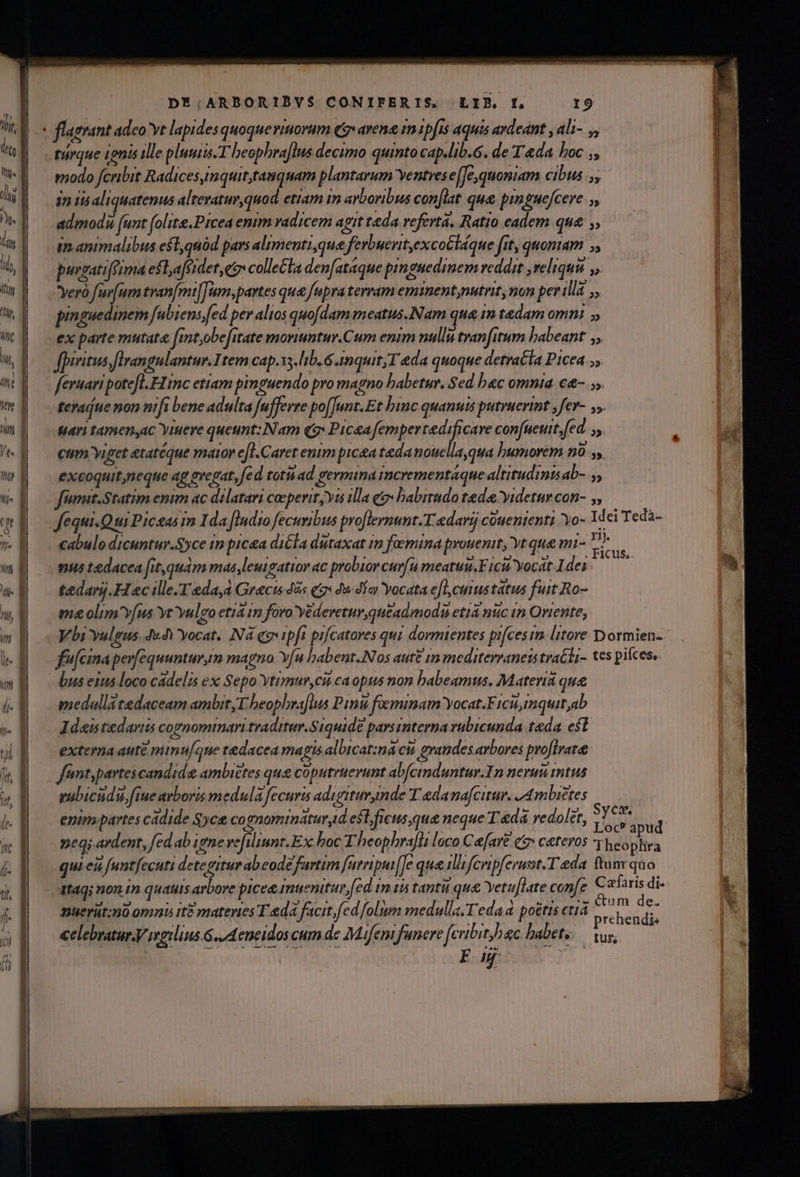 DE ARBORIBVS CONIFERIS. LIB. I. 19
flagrant adeo vt lapides quoque riuorum & arenæ in ipsis aquis ardeant, ali- „
túrque ignis ille pluuiis. Theophrastus decimo quinto cap. lib. 6. de Tæda hoc „
modo scribit Radices, inquit, tanquam plantarum ventres esse, quoniam cibus „
in iis aliquatenus alteratur, quod etiam in arboribus constat quæ pinguescere „
admodū sunt solitæ. Picea enim radicem agit tæda refertā. Ratio eadem quæ „
in animalibus est, quòd pars alimenti, quæ ferbuerit, excoctáque sit, quoniam „
purgatissima est, assidet, & collecta densatáque pinguedinem reddit, reliquū „
verò sursum transmissum, partes quæ supra terram eminent, nutrit, non per illā „
pinguedinem subiens, sed per alios quosdam meatus. Nam quæ in tædam omni „
ex parte mutatæ sint, obesitate moriuntur. Cum enim nullū transitum habeant „
spiritus, strangulantur. Item cap. 13. lib. 6. inquit, Tæda quoque detracta Picea „
seruari potest. Hinc etiam pinguendo pro magno habetur. Sed hæc omnia cæ- „
teraque non nisi bene adulta sufferre possunt. Et hinc quanuis putruerint, ser- „
uari tamen, ac viuere queunt: Nam & Picea semper tædificare consueuit, sed „
cum viget ætatéque maior est. Caret enim picea tæda nouella, qua humorem nō „
excoquit, neque aggregat, sed totū ad germina incrementáque altitudinis ab- „
sumit. Statim enim ac dilatari cœperit, vis illa & habitudo tædæ videtur con- „
sequi. Qui Piceas in Ida studio securibus prosternunt. Tædarij cōuenienti vo- Idei Tedarij.
cabulo dicuntur. Syce in picea dicta dūtaxat in fœmina prouenit, vt quæ mi- Ficus.
nus tædacea sit, quàm mas, leuigatior ac probior cursu meatuū. Ficū vocāt Idei
tædarij. Hæc ille. Tæda, à Græcis δάς & δα δίον vocata est, cuius tātus fuit Ro-
mæ olim vsus vt vulgo etiā in foro vēderetur, quēadmodū etiā nūc in Oriente,
Vbi vulgus δαδὶ vocat. Nā & ipsi piscatores qui dormientes pisces in litore Dormien-
fuscina persequuntur, in magno vsu habent. Nos autē in mediterraneis tracti- tes pisces.
bus eius loco cādelis ex Sepo vtimur, cū ea opus non habeamus. Materiā quæ
medullā tædaceam ambit, Theophrastus Pinū fœminam vocat. Ficū, inquit, ab
Idæis tædariis cognominari traditur. Siquidē pars interna rubicunda tæda est
externa autē minúsque tædacea magis albicat: nā cū grandes arbores prostratæ
sunt, partes candidæ ambiētes quæ cōputruerunt abscinduntur. In neruū intus
rubicūdū, siue arboris medulā securis adigitur, inde Tæda nascitur. Ambiētes
enim partes cādidæ Sycæ cognominātur, id est, ficus, quæ neque Tædā redolēt, Syca. Locus apud
neq; ardent, sed ab igne resiliunt. Ex hoc Theophrasti loco Cæsarē & cæteros Theophra
qui eū sunt secuti detegitur ab eode furtim surripuisse quæ illi scripserunt. Tæda stum quo
itaq; non in quauis arbore piceæ inuenitur, sed in iis tantū quæ vetustate conse- Cæsaris di-
nuerūt: nō omnis itē materies Tædā facit, sed solum medulla. Teda à poëtis etiā ctum de-
celebratur. Virgilius 6. Æneidos cum de Miseni funere scribit, hæc habet, prehendi-
tur,
E iij